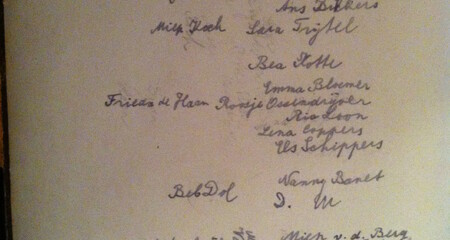 Ans Dikkers
Miep Koch Sara Trijtel
Bea Kotte
Emma Bloemer
Frieda de Haan Roosje Ossendrijver
Ria Loon
Lena Coppers
Els Schippers
Nanny Banet
Beb Dol D. M
Miep v. d. Berg